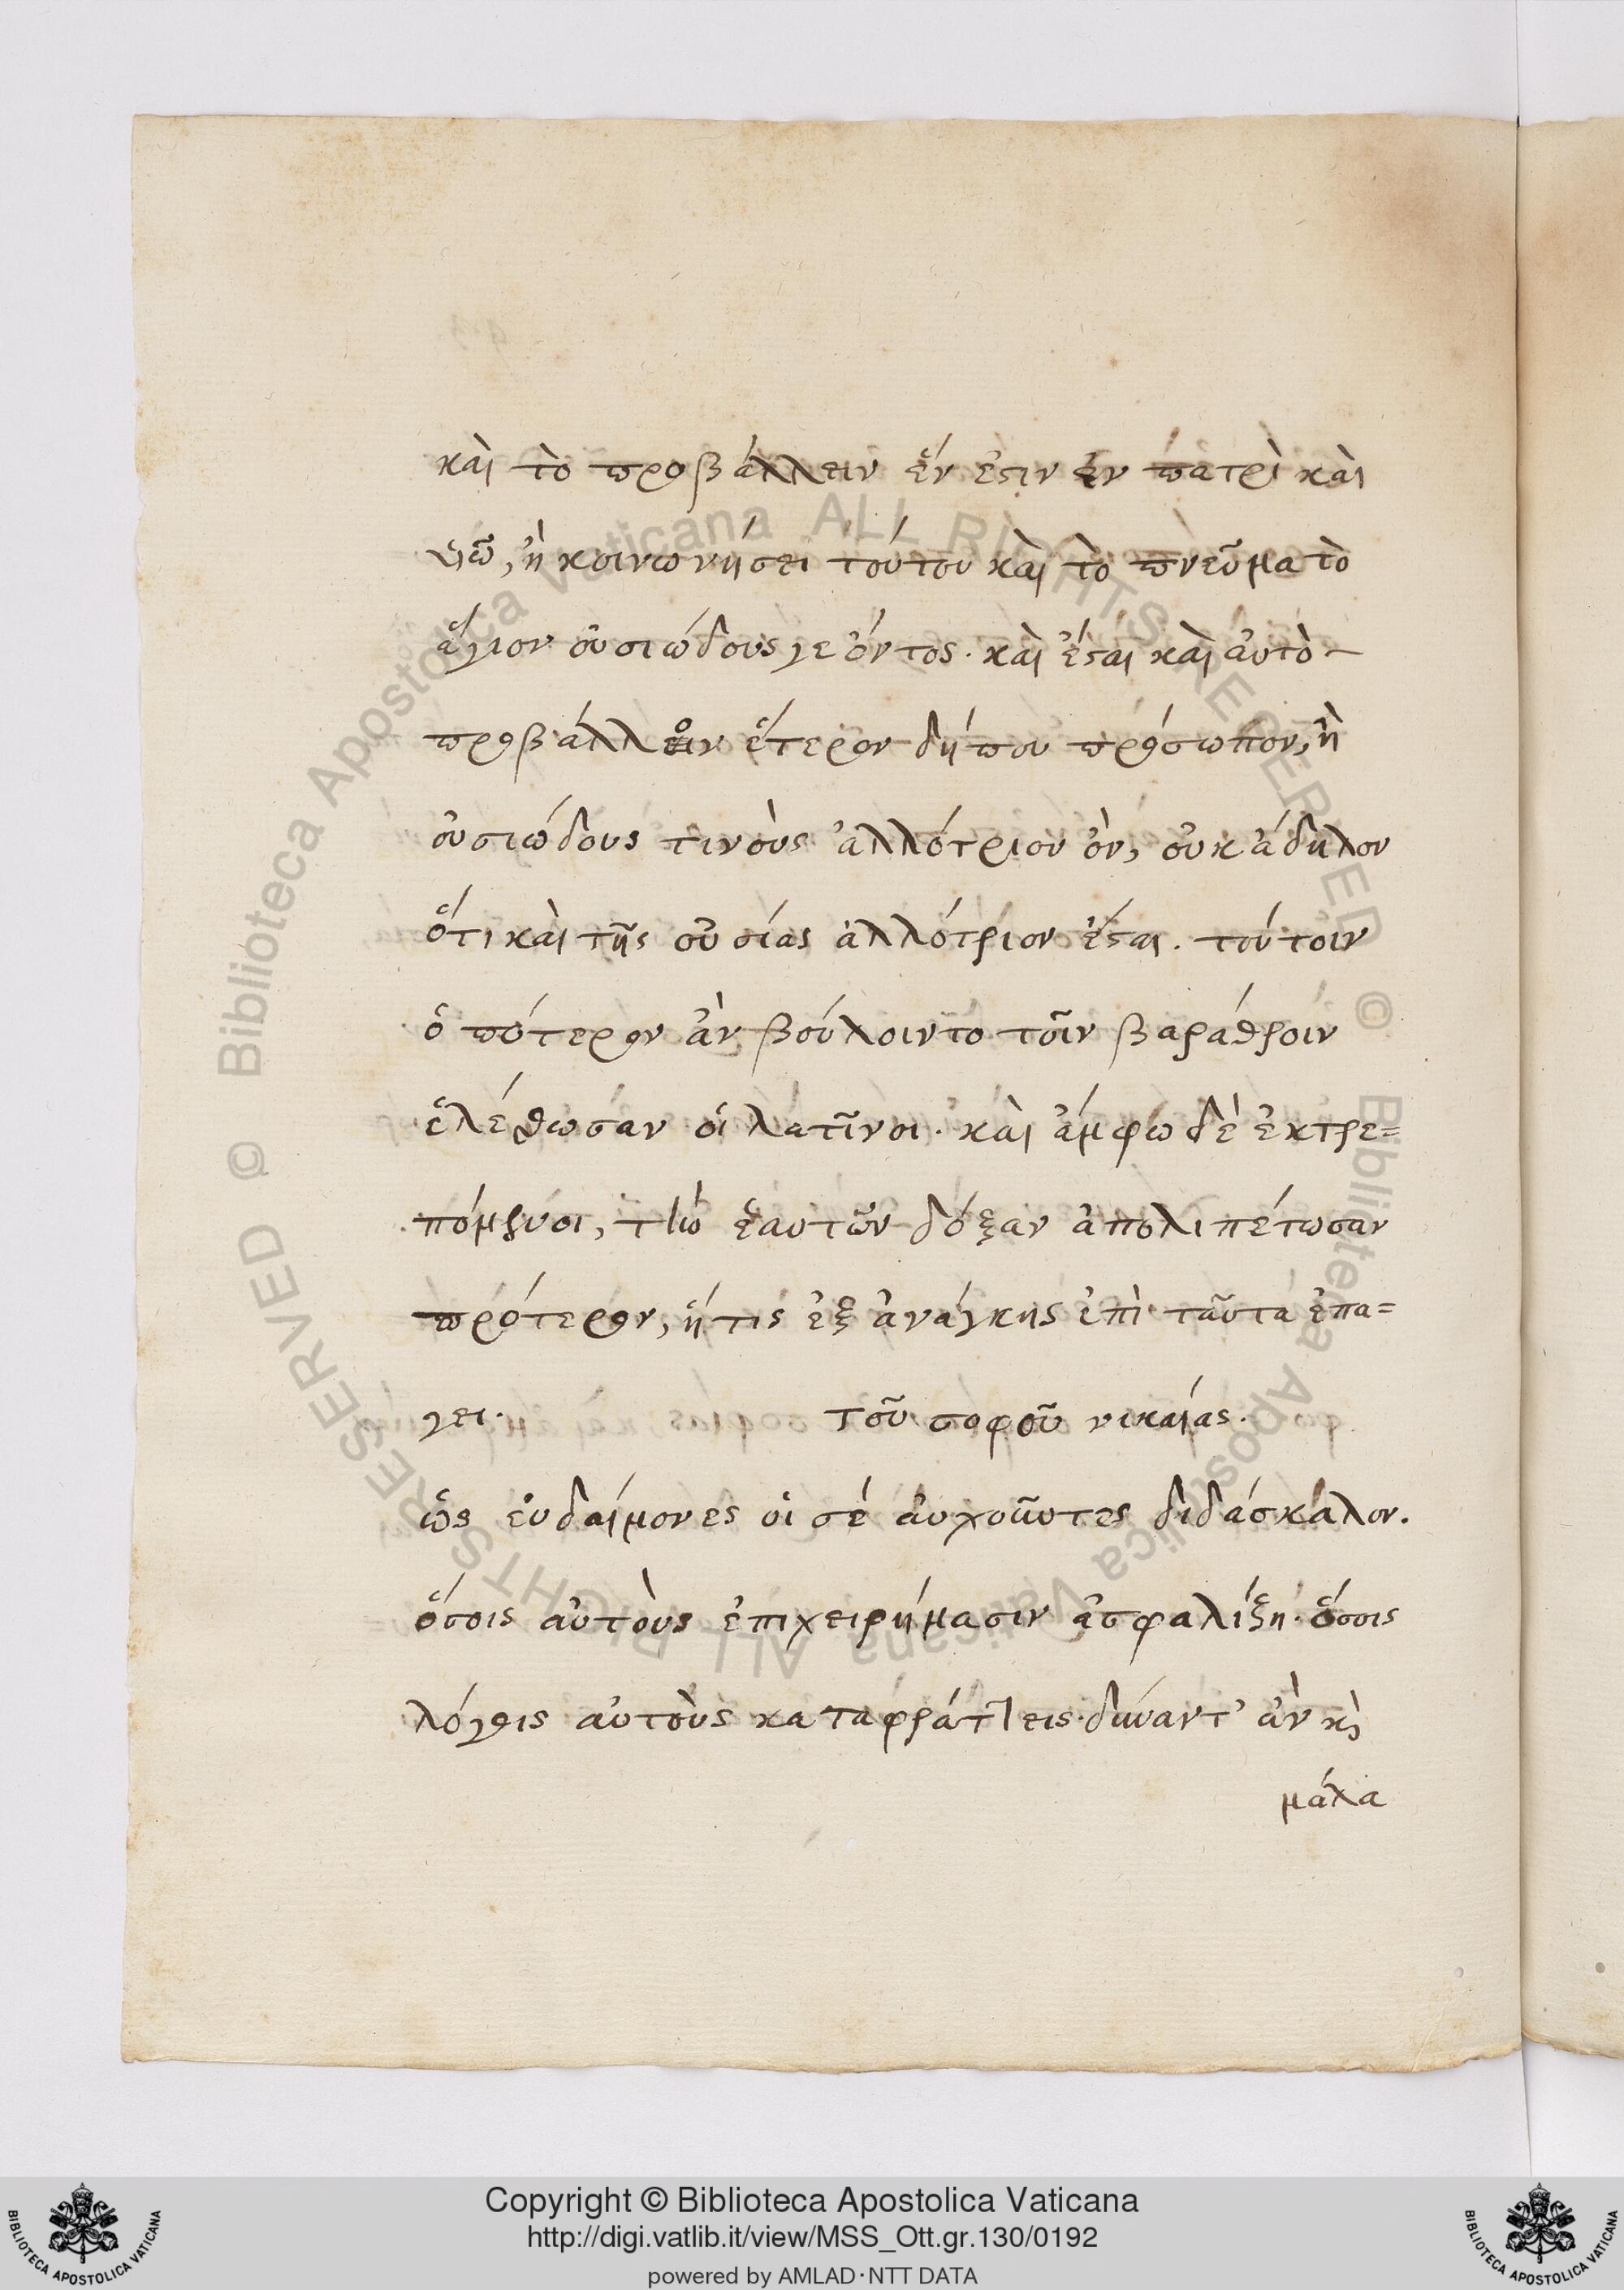 καὶ τὸ προβάλλειν ἕν ἐστιν ἐν πατρὶ καὶ
υἱῶ, ἢ κοινωνήσει τούτου καὶ τὸ πνεῦμα τὸ
ἅγιον οὐσιώδους γε ὄντος· καὶ ἔσται καὶ αὐτὸ
προβάλλον ἕτερον δήπου πρόσωπον, ἢ
οὐσιώδους τινοὺς ἀλλότριον ὂν, οὐκ ἄδηλον
ὅτι καὶ τῆς οὐσίας ἀλλότριον ἔσται. τούτοιν
ὁπότερον ἂν βούλοιντο τοῖν βαράθροιν
ἑλέσθωσαν οἱ λατῖνοι· καὶ ἄμφω δὲ ἐκτρε=
πόμενοι, τὴν ἑαυτῶν δόξαν ἀπολιπέτωσαν
πρότερον, ἥτις ἐξ ἀνάγκης ἐπὶ ταῦτα ἐπα=
γει. τοῦ σοφοῦ νικαίας.
ὡς εὐδαίμονες οἱ σὲ αὐχοῦντες διδάσκαλον.
ὅσοις αὐτοὺς ἐπιχειρήμασιν ἀσφαλίξη· ὅσοις
λόγοις αὐτοὺς καταφράττεις· δύναντ' ἂν καὶ
μάλα
Biblioteca Apostolica Vaticana ALL RIGHTS RESERVED ©
Biblioteca Apostolica Vaticana ALL RIGHTS RESERVED ©
BIBLIOTECA APOSTOLICA VATICANA
Copyright © Biblioteca Apostolica Vaticana
http://digi.vatlib.it/view/MSS_Ott.gr.130/0192
powered by AMLAD·NTT DATA
BIBLIOTECA APOSTOLICA VATICANA